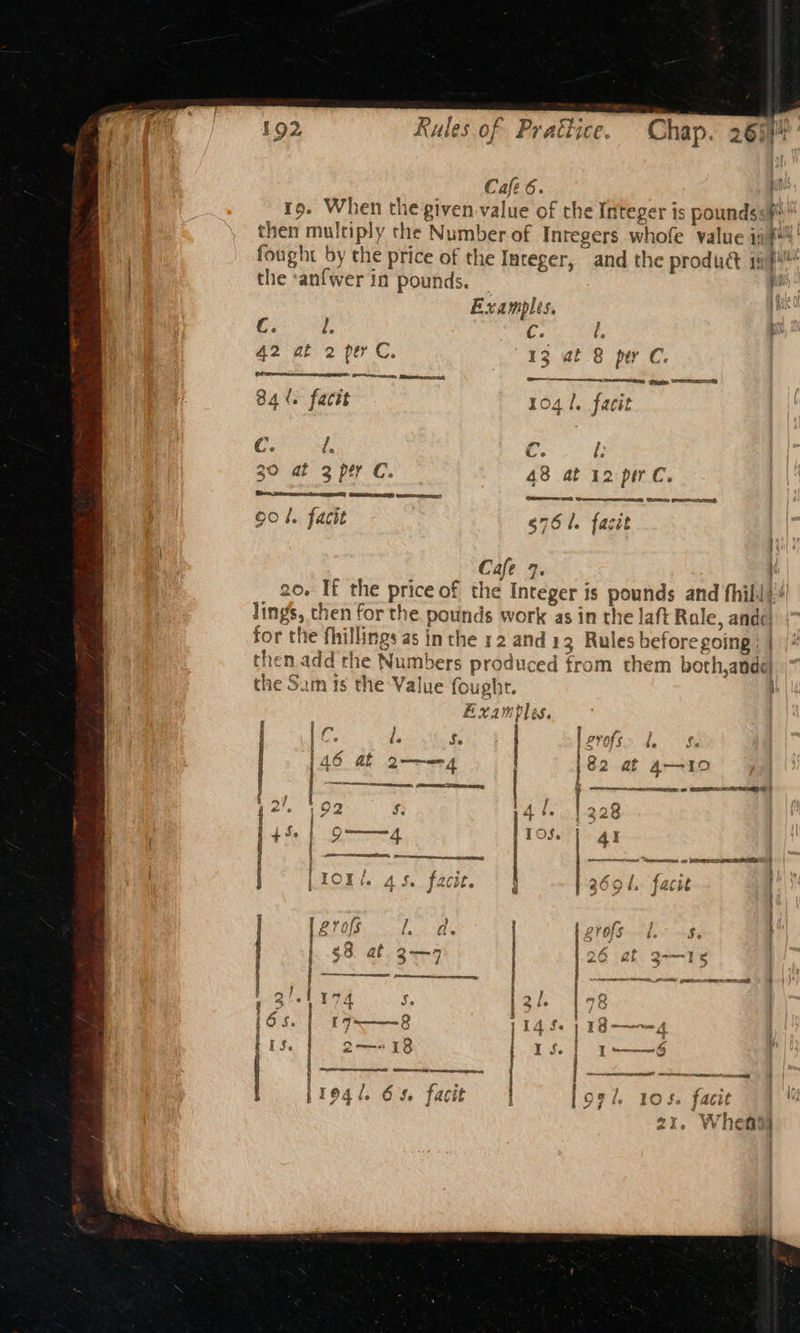 192 Rules of Practice. Chap. 26
Caſe 6.
19. When the given value of the Integer is pounds
then multiply the Number of Integers whoſe value is
ſought by the price of the Integer, and the product is
the anſwer in pounds.
Examples.
C. l. C. l.
42 at 2 per C. 13 at 8 per C.
84 l. facit 104 l. facit
C. l. C. l.
30 at 3 per C. 48 at 12 per C.
90 l. facit 576 l. facit
Caſe 7.
20. If the price of the Integer is pounds and ſhil-
lings, then for the pounds work as in the laſt Rule, and
for the ſhillings as in the 12 and 13 Rules beforegoing;
then add the Numbers produced from them both, and
the Sum is the Value ſought.
Examples.
C. l. s. groſs l. s.
46 at 2——4 82 at 4—10
2l. 92 s. 4 l. 328
4s. 9——4 10s. 41
101 l. 4 s. facit. 369 l. facit
groſs l. d. groſs l. s.
58 at 3—7 26 at 3—15
3l. 174 s. 3l. 78
6s. 17——8 14 s. 18——4
1s. 2—18 1 s. 1——6
194 l. 6 s. facit 97 l. 10 s. facit
21. When